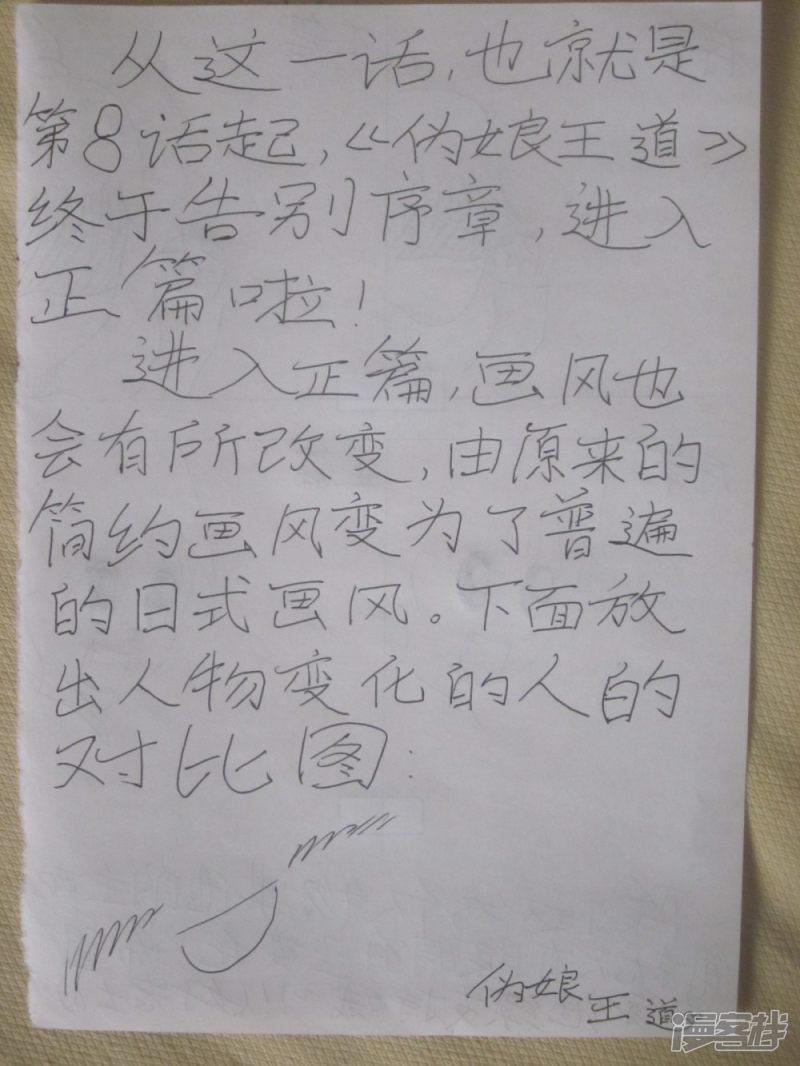 从这一话，也就是
第8话起，《伪娘王道》
终于告别序章，进入
正篇啦！
进入正篇，画风也
会有所改变，由原来的
简约画风变为了普遍
的日式画风。下面放
出人物变化的人的
对比图：
伪娘王道
漫客栈